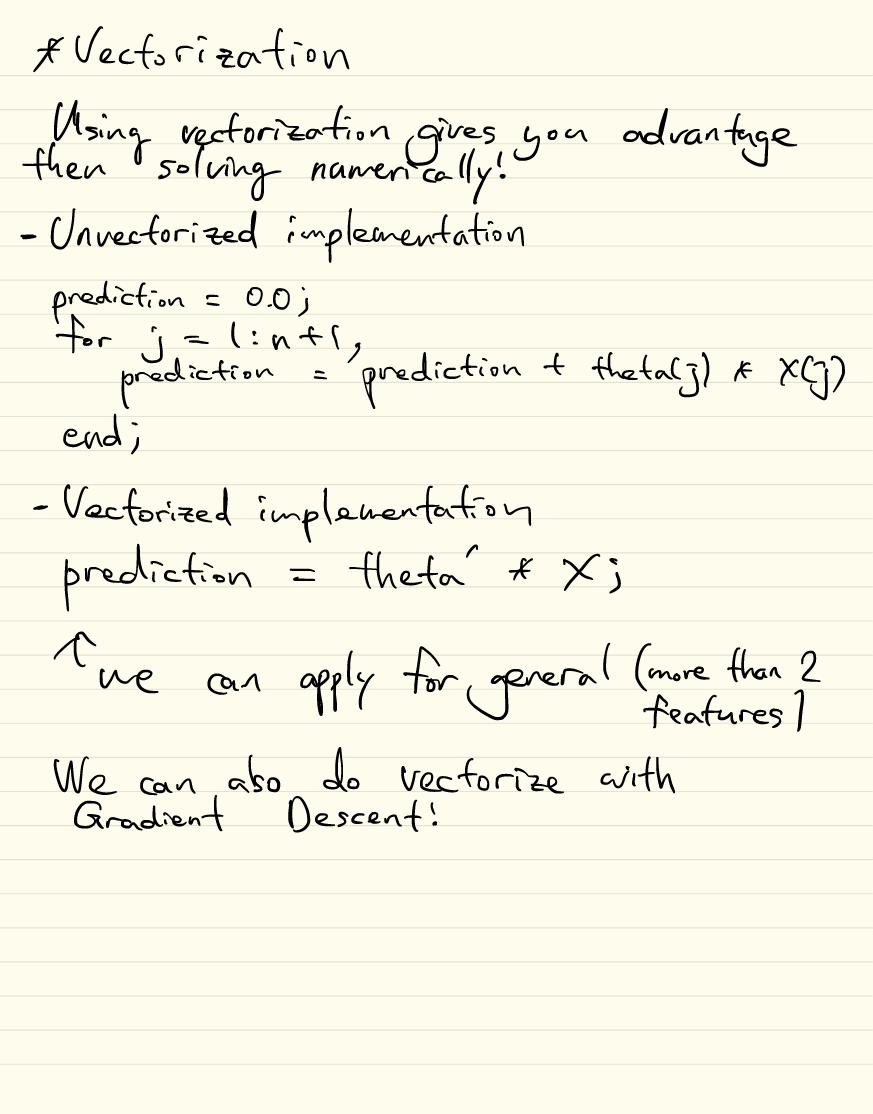 * Vectorization
Using vectorization gives you advantage
then solving namerically!
- Unvectorized implementation
prediction = 0.0;
for j = 1:n+1,
prediction = prediction + theta(j) * x(j)
end;
- Vectorized implementation
prediction = theta' * X;
↑ we can apply for general (more than 2
features)
We can also do vectorize with
Gradient Descent!